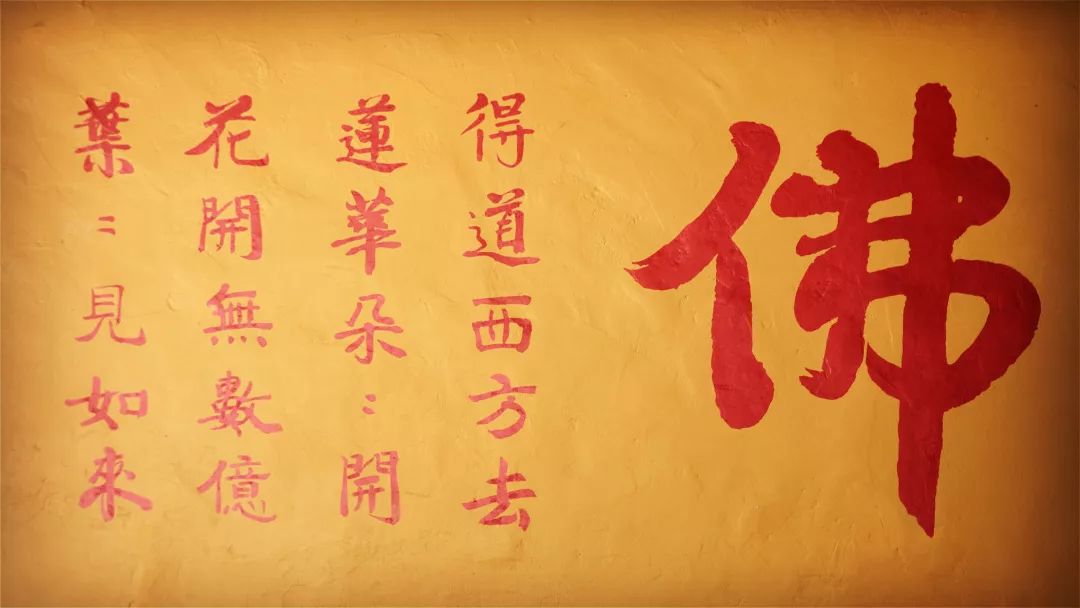 佛
得道西方去
蓮華朵〻開
花開無數億
葉〻見如來